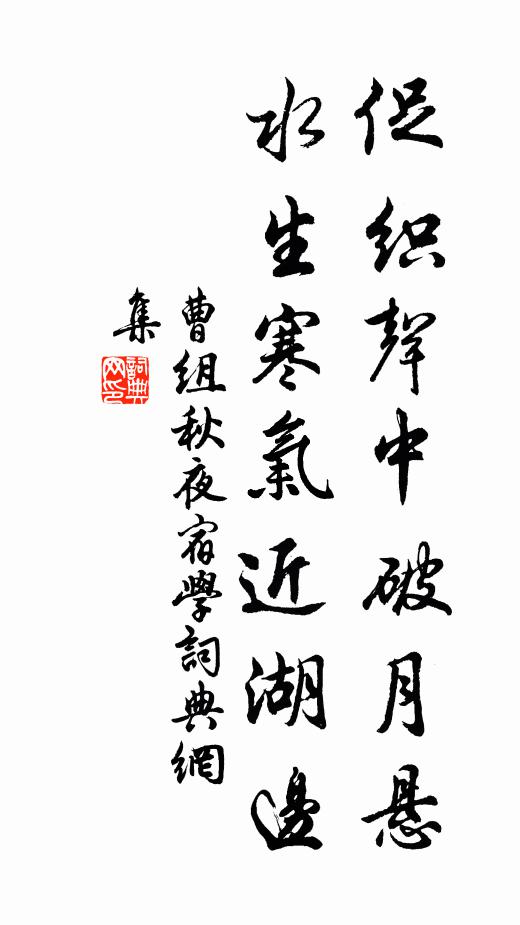 促織聲中破月懸
水生寒氣近湖邊
曹組秋夜宿學詞典網
集
詞典網印